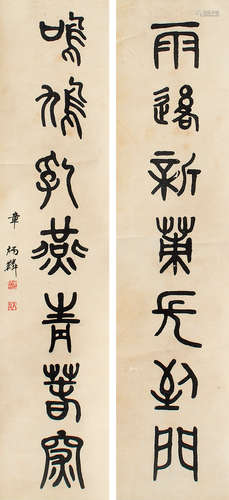 雨後新長到門
鳴鳩乳燕青春深
章炳麟